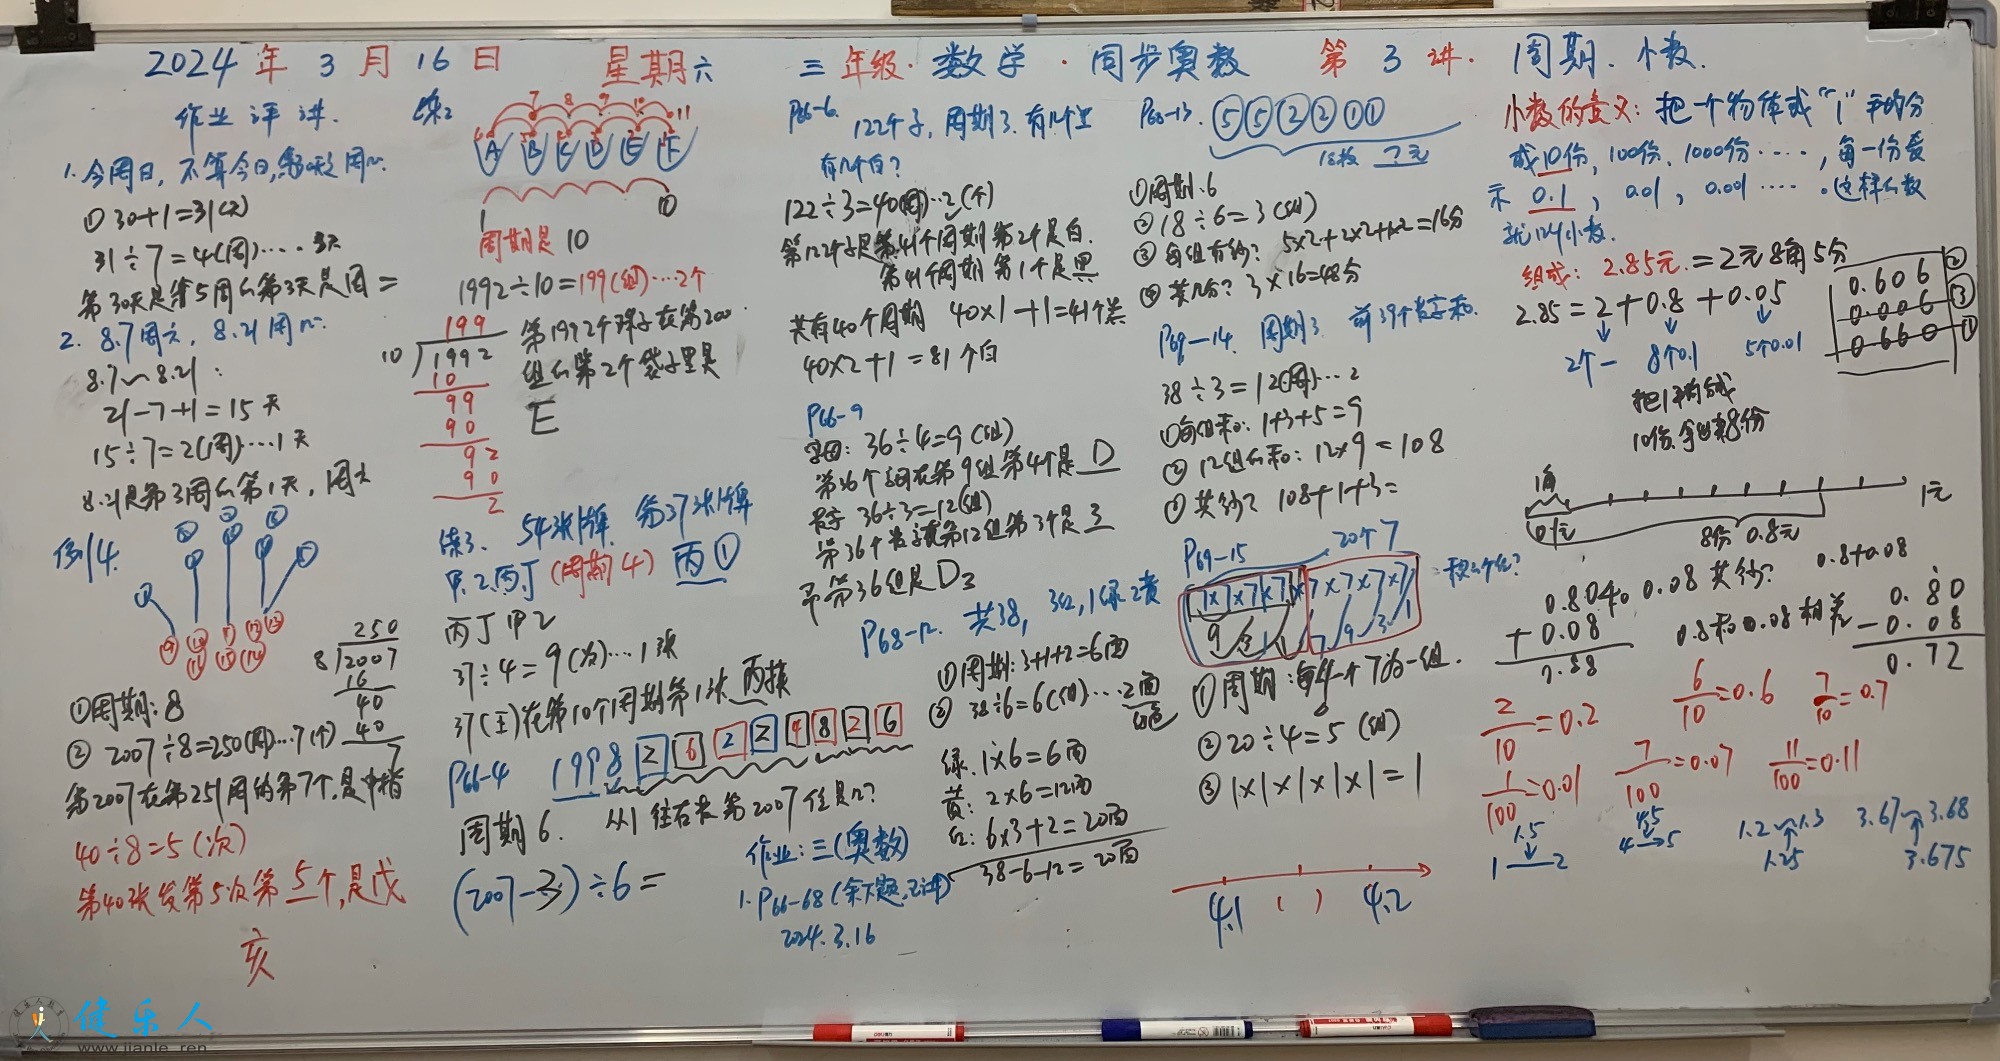 2024年3月16日 星期六 三年级·数学·同步奥数 第3讲. 周期.小数.
作业评讲.
1.今周日,不算今日,
①30+1=31(天)
31÷7=4(周)····3天
第30天是第5周的第3天是周二
2. 8.7周六, 8.21周几.
8.7～8.21:
21-7+1=15天
15÷7=2(周)···1天
8.21是第3周的第1天,周六
例4.
①周期:8
②2007÷8=250(周)···7(个)
250
8 2007
16
40
40
7
第2007在第251周的第7个,是中指
40÷8=5(次)
第40张发第5次第5个,是戊
亥
练2
7 8 9 10 11
A B C D E F
1 10
周期是10
1992÷10=199(组)····2个
199
10 1992
10
99
90
92
90
2
第1992个珠子在第200
组的第2个袋子里是
E
练3、54张牌, 第37张牌
甲.乙.丙.丁(周期4) 丙①
丙丁甲乙
37÷4=9(次)····1张
37(王)在第10个周期第1张 丙摸
P66-4 1998 2 6 2 2 4 8 2 6
周期6. 从1往右长第2007位是几?
(2007-3)÷6=
作业:三(奥数)
1.P66-68(余下题,已讲)
2024.3.16
P66-6. 122个子,周期3.有几个黑
有几个白?
122÷3=40(周)··2(个)
第122个子是第41个周期第2个是白.
第41个周期第1个是黑
共有40个周期 40×1+1=41个黑
40×2+1=81个白
P66-9
字母: 36÷4=9(组)
第36个字母在第9组第4个是D
数字 36÷3=12(组)
第36个数字在第12组第3个是3
第36组是D3
P68-12. 共38, 3红,1绿2黄
①周期:3+1+2=6面
②38÷6=6(组)···2面
红色
绿.1×6=6面
黄:2×6=12面
红:6×3+2=20面
38-6-12=20面
P68-13. ⑤⑤②②①①
18枚 ?元
①周期.6
②18÷6=3(组)
③每组有多少? 5×2+2×2+1×2=16分
④共几分? 3×16=48分
P69-14. 周期3. 前39个数字和.
38÷3=12(周)···2
①每组和: 1+3+5=9
②12组的和: 12×9=108
③共多少? 108+1+3=
P69-15 20个7
7×7×7×7×7×7×7×7
9 3 1 7 9 3 1
①周期:每4个7为一组.
②20÷4=5(组)
③1×1×1×1×1=1
4.1 ( ) 4.2
小数的意义: 把一个物体或“1”平均分
成10份, 100份, 1000份·····, 每一份表
示0.1, 0.01, 0.001·····。这样的数
就叫小数.
组成: 2.85元.=2元8角5分
2.85=2+0.8+0.05
2个一 8个0.1 5个0.01
把1平均分成
10份,拿出来8份
0.606 ②
0.006 ③
0.660 ①
1角 1元
0.1元 8份 0.8元
0.8和0.08共多少? 0.8+0.08
0.80
+0.08
0.88
0.8和0.08相差
0.80
-0.08
0.72
2/10=0.2 6/10=0.6 7/10=0.7
1/100=0.01 7/100=0.07 11/100=0.11
1.5 4.5
1 2 4 5
1.2 1.3 3.67 3.68
1.25 3.675
健乐人
www.jianle.ren